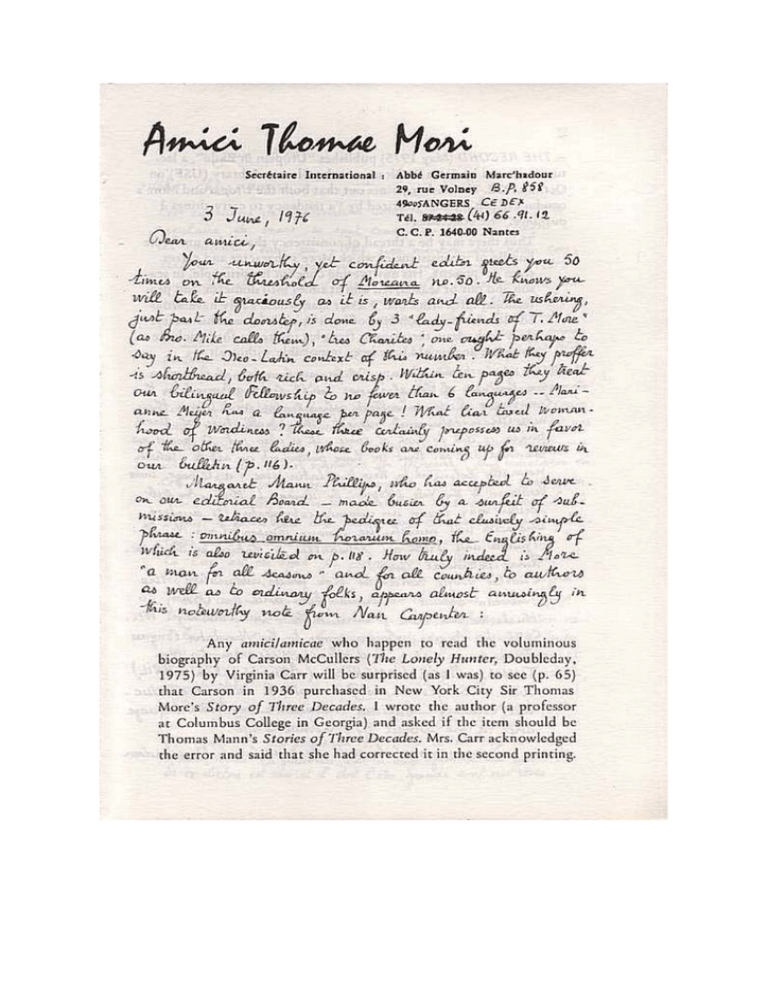 Amici Thomae Mori
Secrétaire International : Abbé Germain Marc'hadour
29, rue Volney B.P. 858
49005 ANGERS CEDEX
3 June, 1976
Tél. (41) 66.91.12
C. C. P. 1640-00 Nantes
Dear amici,
Your unworthy, yet confident editor greets you 50
times on the threshold of Moreana no. 50. He knows you
will take it graciously as it is, warts and all. The ushering,
just past the doorstep, is done by 3 "lady-friends of T. More"
(as Bro. Mike calls them), "tres Charites", one ought perhaps to
say in the Neo-Latin context of this number. What they proffer
is shortbread, both rich and crisp. Within ten pages they treat
our bilingual Fellowship to no fewer than 6 languages -- Mari-
anne Meijer has a language per page ! What liar taxed woman-
hood of wordiness ? These three certainly prepossess us in favor
of the other three ladies, whose books are coming up for reviews in
our bulletin (p. 116).
Margaret Mann Phillips, who has accepted to serve
on our editorial Board — made busier by a surfeit of sub-
missions — retraces here the pedigree of that elusively simple
phrase : omnibus omnium horarum homo, the Englishing of
which is also revisited on p. 118. How truly indeed is More
"a man for all seasons" and for all countries, to authors
as well as to ordinary folks, appears almost amusingly in
this noteworthy note from Nan Carpenter :
Any amici/amicae who happen to read the voluminous
biography of Carson McCullers (The Lonely Hunter, Doubleday,
1975) by Virginia Carr will be surprised (as I was) to see (p. 65)
that Carson in 1936 purchased in New York City Sir Thomas
More's Story of Three Decades. I wrote the author (a professor
at Columbus College in Georgia) and asked if the item should be
Thomas Mann's Stories of Three Decades. Mrs. Carr acknowledged
the error and said that she had corrected it in the second printing.